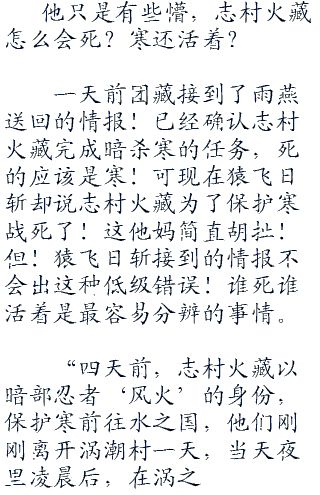 他只是有些懵，志村火藏
怎么会死？寒还活着？
一天前团藏接到了雨燕
送回的情报！已经确认志村
火藏完成暗杀寒的任务，死
的应该是寒！可现在猿飞日
斩却说志村火藏为了保护寒
战死了！这他妈简直胡扯！
但！猿飞日斩接到的情报不
会出这种低级错误！谁死谁
活着是最容易分辨的事情。
“四天前，志村火藏以
暗部忍者‘风火’的身份，
保护寒前往水之国，他们刚
刚离开涡潮村一天，当天夜
里凌晨后，在涡之